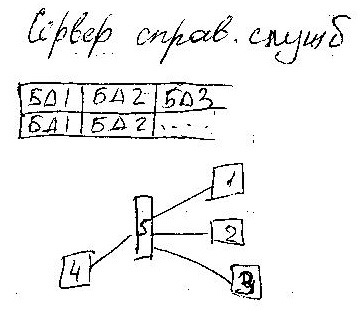 Сервер справ. служб
БД1 БД2 БД3
БД1 БД2 .....
1
5
2
4
3